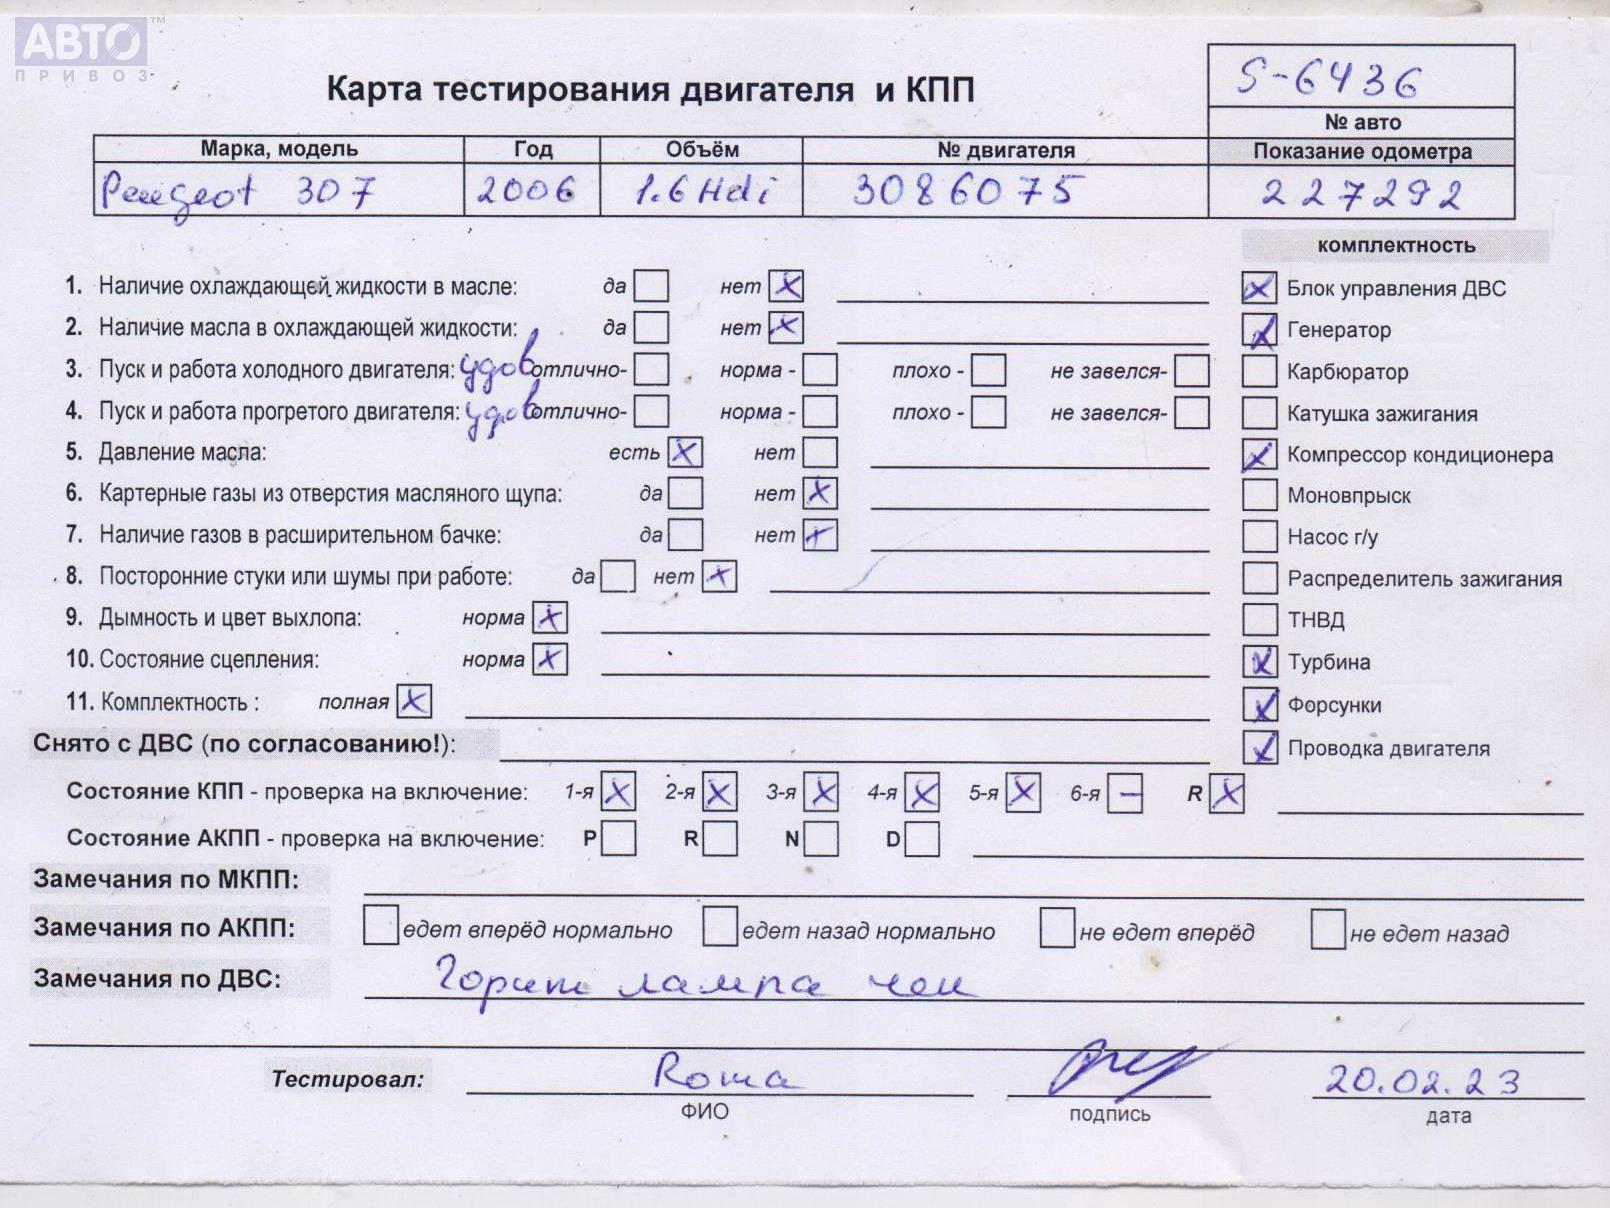 АВТО™
ПРИВОЗ
Карта тестирования двигателя и КПП
S-6436
№ авто
Марка, модель Год Объём № двигателя Показание одометра
Peugeot 307 2006 1.6 Hdi 3086075 227292
комплектность
1. Наличие охлаждающей жидкости в масле: да нет X
Блок управления ДВС
2. Наличие масла в охлаждающей жидкости: да нет X
Генератор
3. Пуск и работа холодного двигателя: удов отлично- норма - плохо - не завелся-
Карбюратор
4. Пуск и работа прогретого двигателя: удов отлично- норма - плохо - не завелся-
Катушка зажигания
5. Давление масла: есть X нет
Компрессор кондиционера
6. Картерные газы из отверстия масляного щупа: да нет X
Моновпрыск
7. Наличие газов в расширительном бачке: да нет X
Насос г/у
8. Посторонние стуки или шумы при работе: да нет X
Распределитель зажигания
9. Дымность и цвет выхлопа: норма X
ТНВД
10. Состояние сцепления: норма X
Турбина
11. Комплектность : полная X
Форсунки
Снято с ДВС (по согласованию!):
Проводка двигателя
Состояние КПП - проверка на включение: 1-я X 2-я X 3-я X 4-я X 5-я X 6-я — R X
Состояние АКПП - проверка на включение: P R N D
Замечания по МКПП:
Замечания по АКПП: едет вперёд нормально едет назад нормально не едет вперёд не едет назад
Замечания по ДВС: Горит лампа чек
Тестировал: Рома 20.02.23
ФИО подпись дата